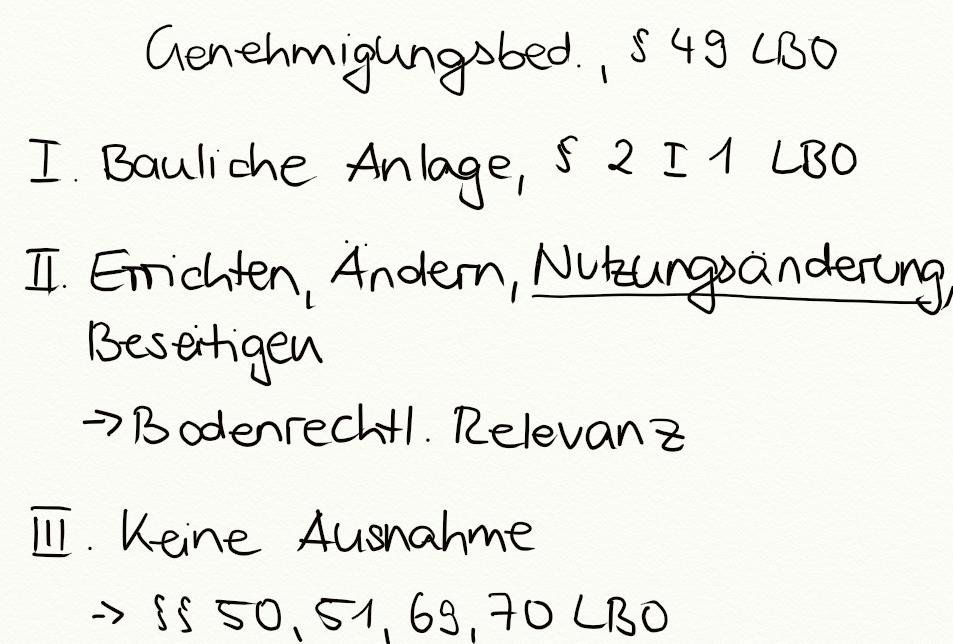 Genehmigungsbed., § 49 LBO
I. Bauliche Anlage, § 2 I 1 LBO
II. Errichten, Ändern, Nutzungsänderung,
Beseitigen
-> Bodenrechtl. Relevanz
III. Keine Ausnahme
-> §§ 50, 51, 69, 70 LBO